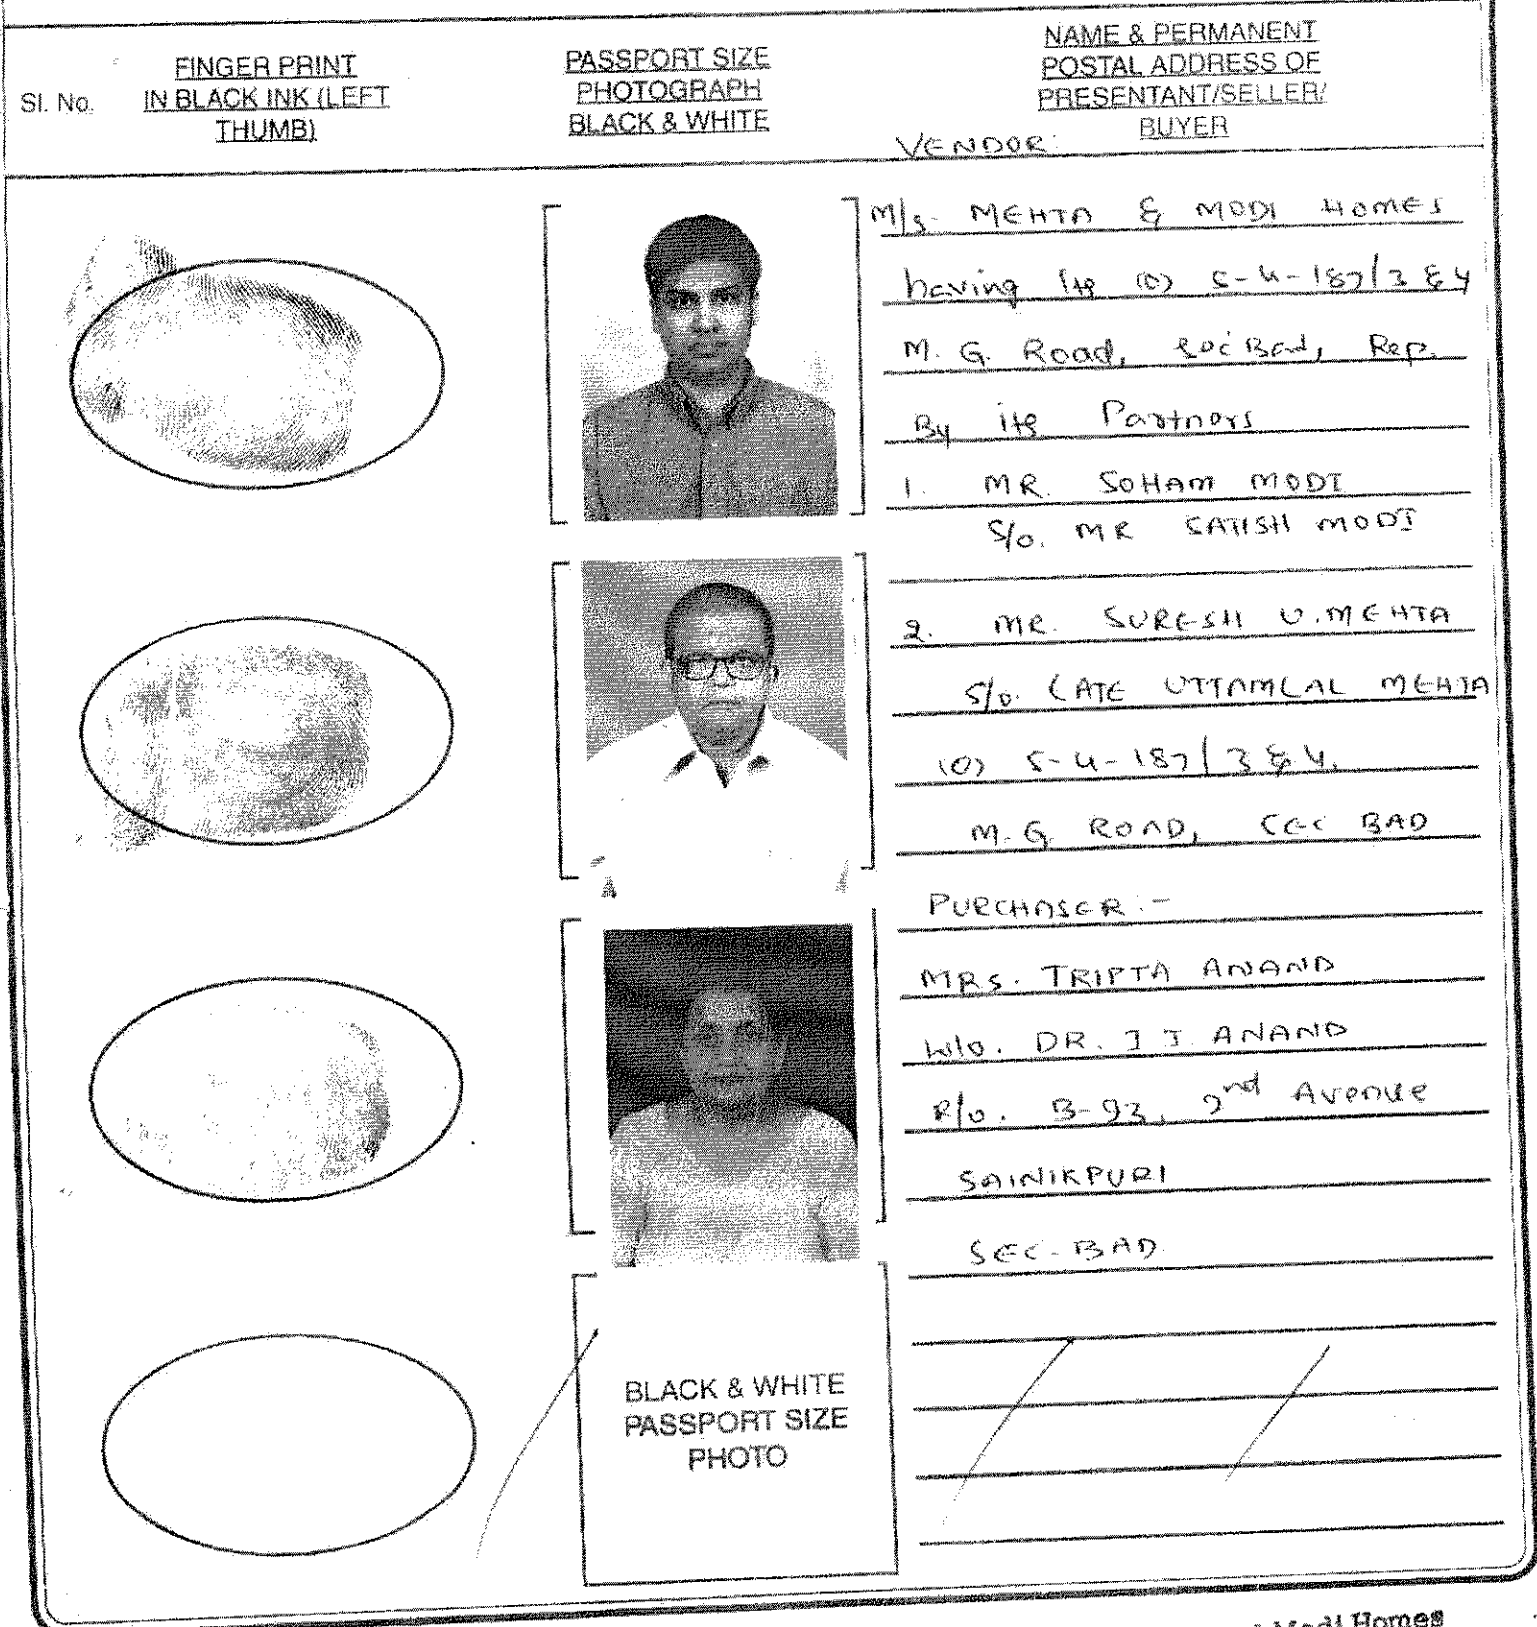 Sl. No.
FINGER PRINT
IN BLACK INK (LEFT
THUMB)
PASSPORT SIZE
PHOTOGRAPH
BLACK & WHITE
NAME & PERMANENT
POSTAL ADDRESS OF
PRESENTANT/SELLER/
BUYER
VENDOR:
M/s. MEHTA & MODI HOMES
having its (O) 5-4-187/3 & 4
M. G. Road, Sec'Bad, Rep.
By its Partners
1. MR. SOHAM MODI
S/o. MR SATISH MODI
2. MR. SURESH U. MEHTA
S/o. LATE UTTAMLAL MEHTA
(O) 5-4-187/3 & 4.
M. G. ROAD, SEC BAD
PURCHASER:-
MRS. TRIPTA ANAND
W/o. DR. J J. ANAND
R/o. B-93, 2nd Avenue
SAINIKPURI
SEC-BAD.
BLACK & WHITE
PASSPORT SIZE
PHOTO
Modi Homes